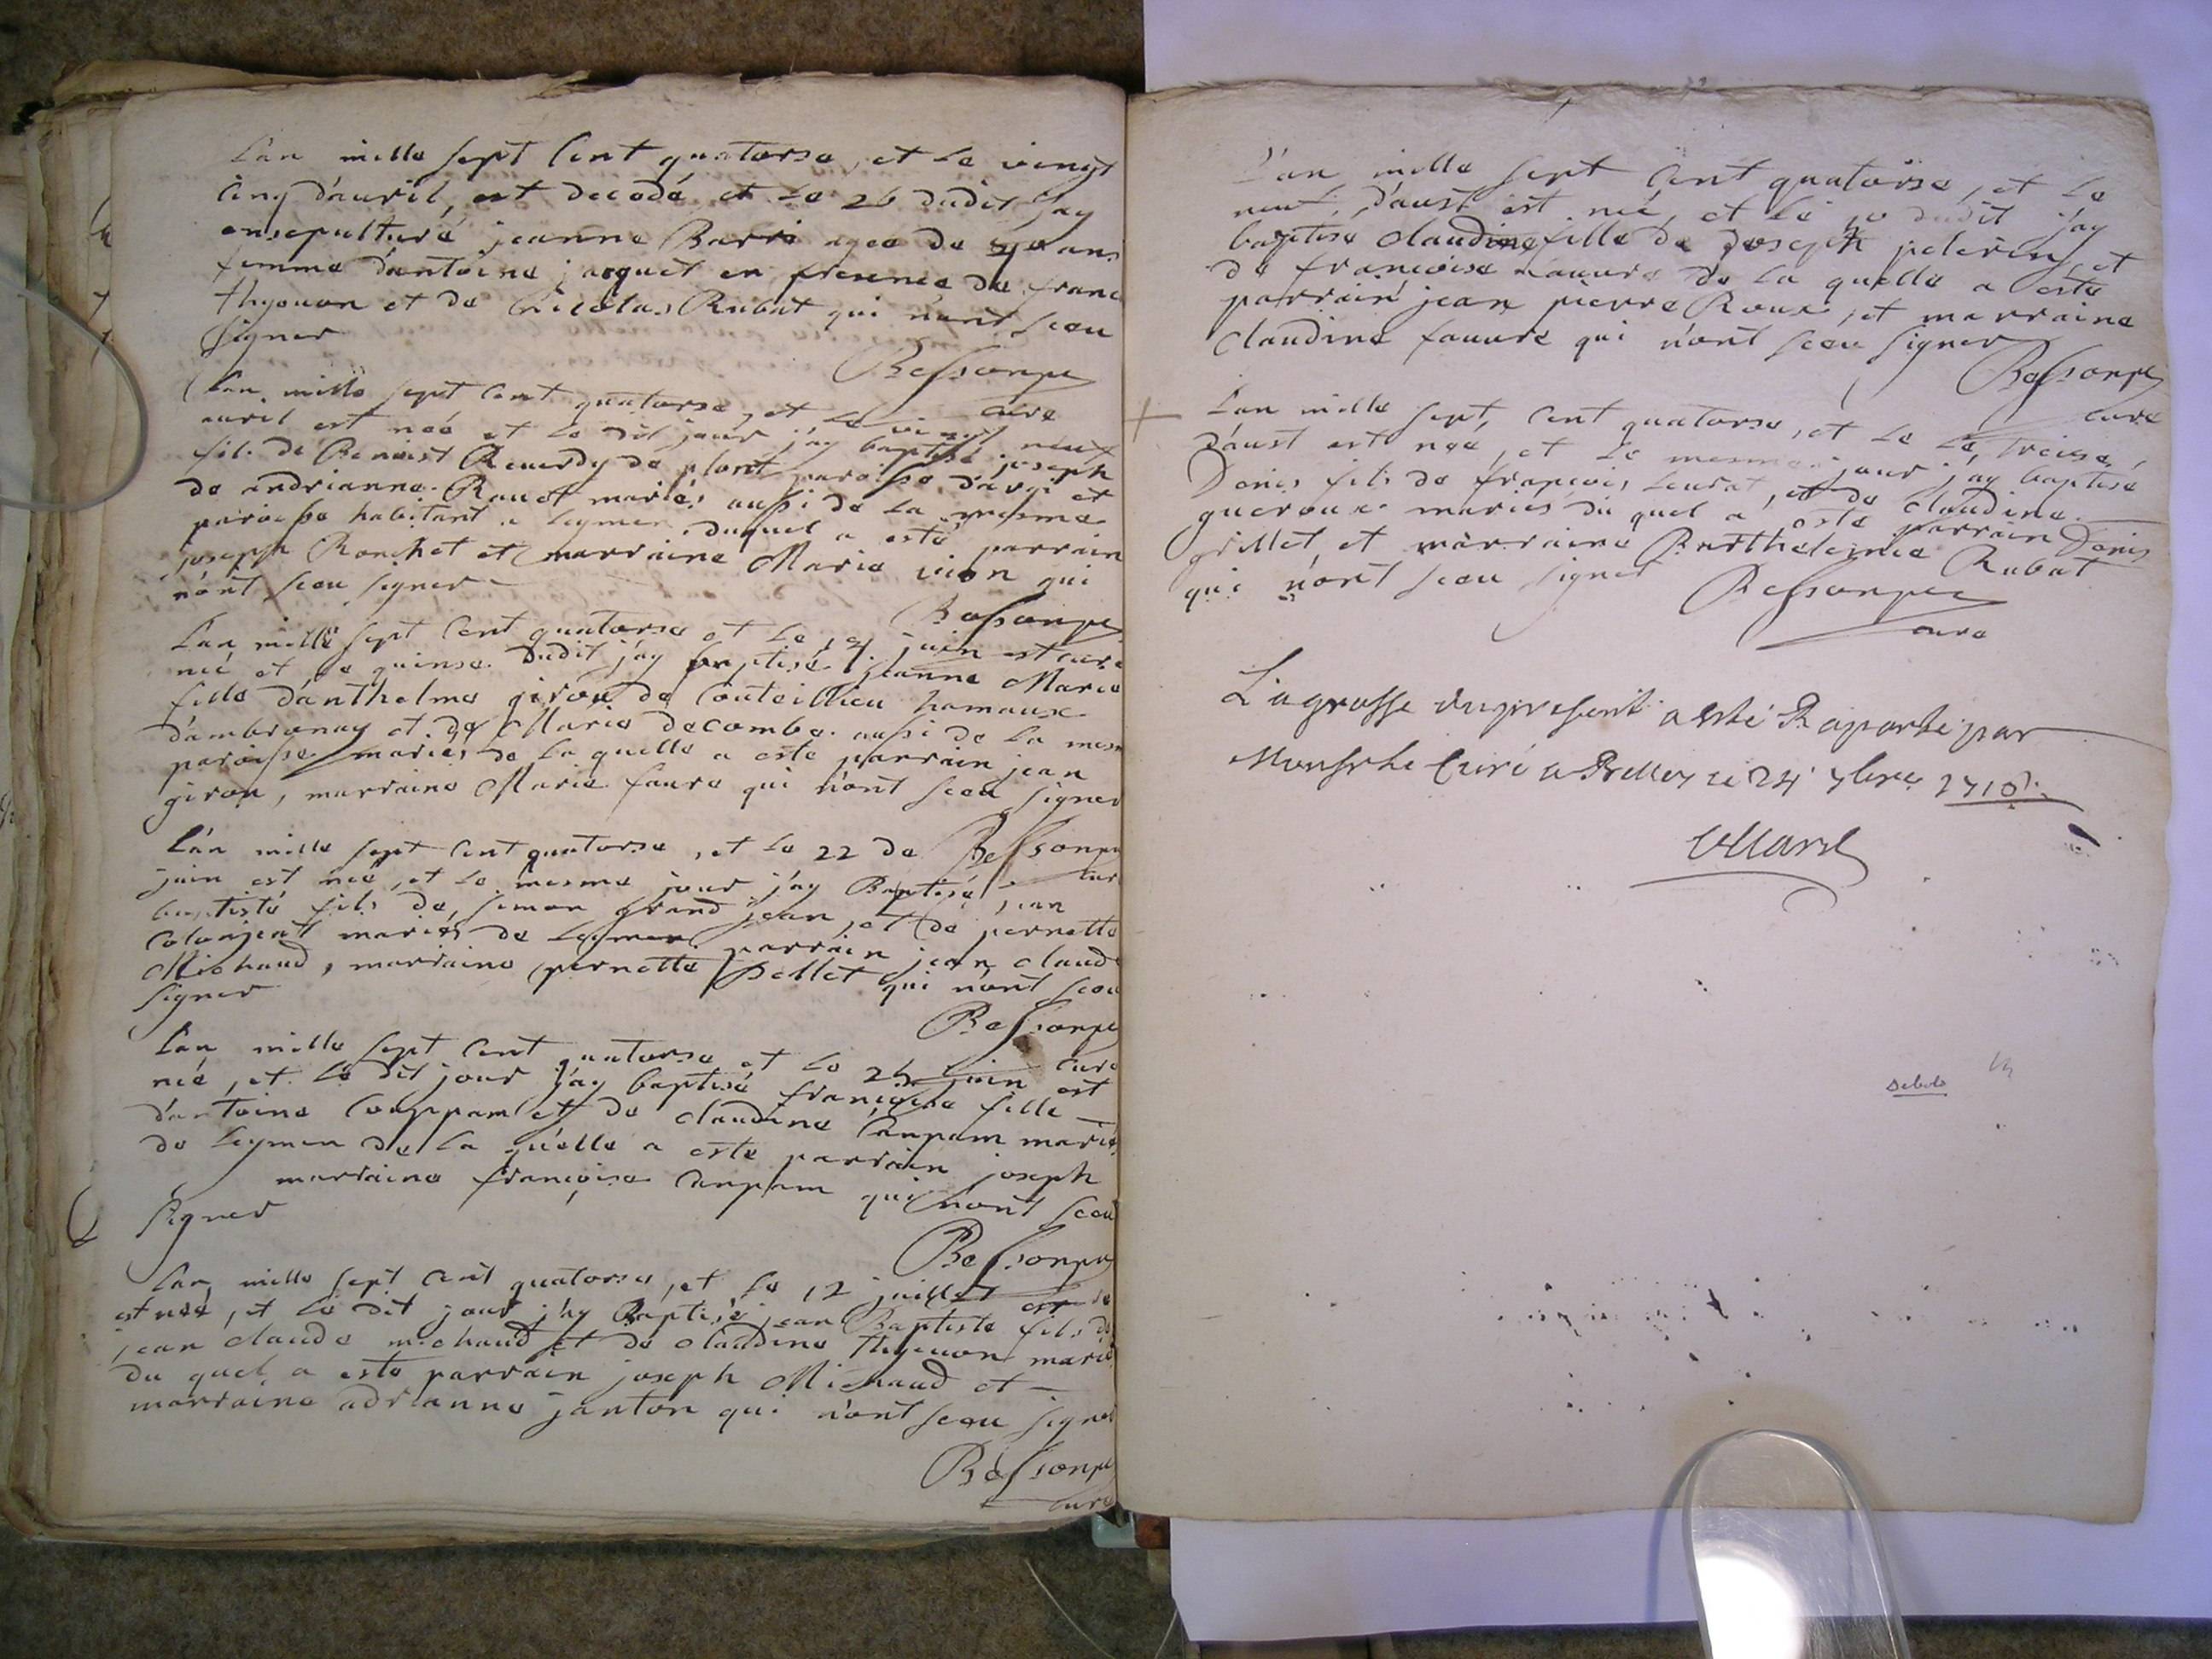 Lan mille sept Cent quatorse, et Le vingt
Cinq d'auril, est decedé et Le 26 dudit j'ay
ensepulturé jeanne Barri agee de ans
femme d'antoine jaquet en presence de franc
thyouon et de Nicolas Rubat qui n'ont sceu
signer
Bessonpe
cure
Lan mille sept Cent quatorse, et Le vingt neuf
auril est née et Le dit jour j'ay baptisé joseph
fils de Benoist Reuerdy de plont paroisse d'argi et
de andrianne Rauet mariés aussi de La mesme
paroisse habitant a Leymen duquel a esté parrain
joseph Ronchet et marraine Marie vion qui
n'ont sceu signer
Bessonpe
cure
Lan mille sept Cent quatorse et Le 14 juin est
née et Le quinse dudit j'ay baptisé jeanne Marie
fille d'anthelme girou de Couteillieu hamaux
d'ambronay et de Marie decombe aussi de La mesm
paroisse mariés de La quelle a este parrain jean
girou, marraine Marie faure qui n'ont sceu signer
Bessonpe
cure
Lan mille sept Cent quatorse, et Le 22 de
juin est née, et Le mesme jour j'ay Baptisé jean
baptiste fils de simon grand jean, et de pernette
Colonjeat mariés de Leymen parrain jean claude
Michaud, marraine pernette pellet qui n'ont sceu
signer
Bessonpe
cure
Lan mille sept Cent quatorse et Le 26 juin est
née, et Le dit jour j'ay baptisé françoise fille
d'antoine Couppam et de claudine Canpam mariés
de Leymen de La quelle a este parrain joseph
marraine françoise Canpam qui n'ont sceu
signer
Bessonpe
Lan mille sept Cent quatorse, et Le 12 juillet
est née, et Le dit jour j'ay Baptisé jean Baptiste fils de
jean claude michaud et de claudine thyouon mariés
du quel a este parrain joseph Michaud et
marraine adrianne janton qui n'ont sceu signer
Bessonpe
cure
L'an mille sept Cent quatorse, et Le
neuf d'aust est née, et Le 10 dudit j'ay
baptise claudine fille de joseph pelerin, et
de françoise Lauure de La quelle a este
parrain jean pierre Roux, et marraine
claudine fauure qui n'ont sceu signer
Bessonpe
cure
Lan mille sept Cent quatorse, et Le Le treise
d'aust est nee, et Le mesme jour j'ay baptisé
Denis fils de françois Leurat, et de claudine
gueroux mariés du quel a este parrain Denis
grillet, et marraine Barthelemie Rubat
qui n'ont sceu signer Bessonpe
cure
La grosse du present a esté Raporté par
Monsr Le Curé a Belley ce 24 7bre